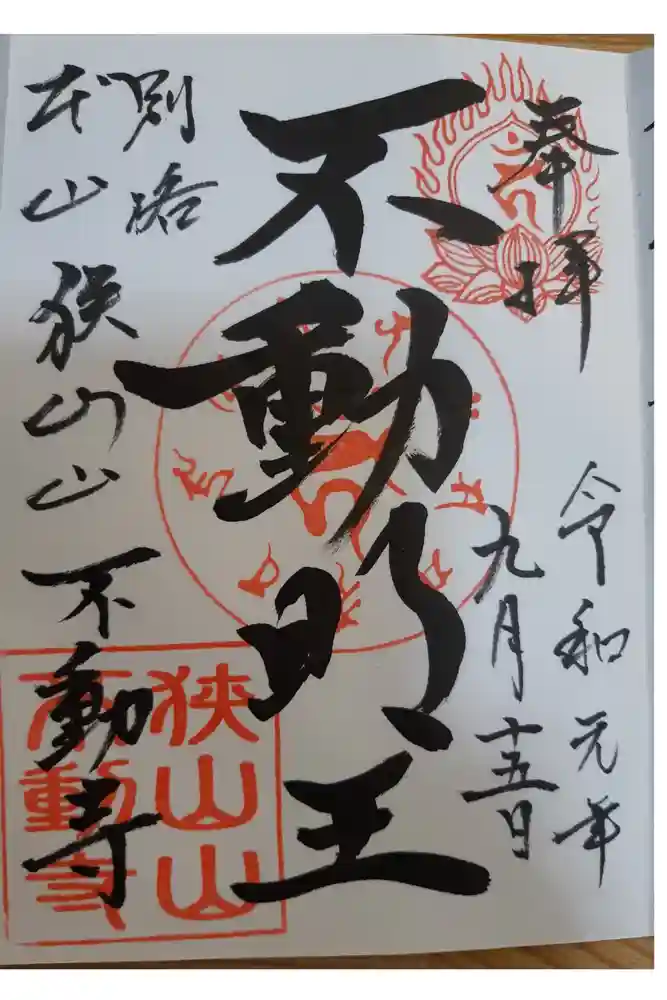 奉拝
令和元年
九月十五日
不動明王
別格
本山狭山山不動寺
狭山山
不動寺